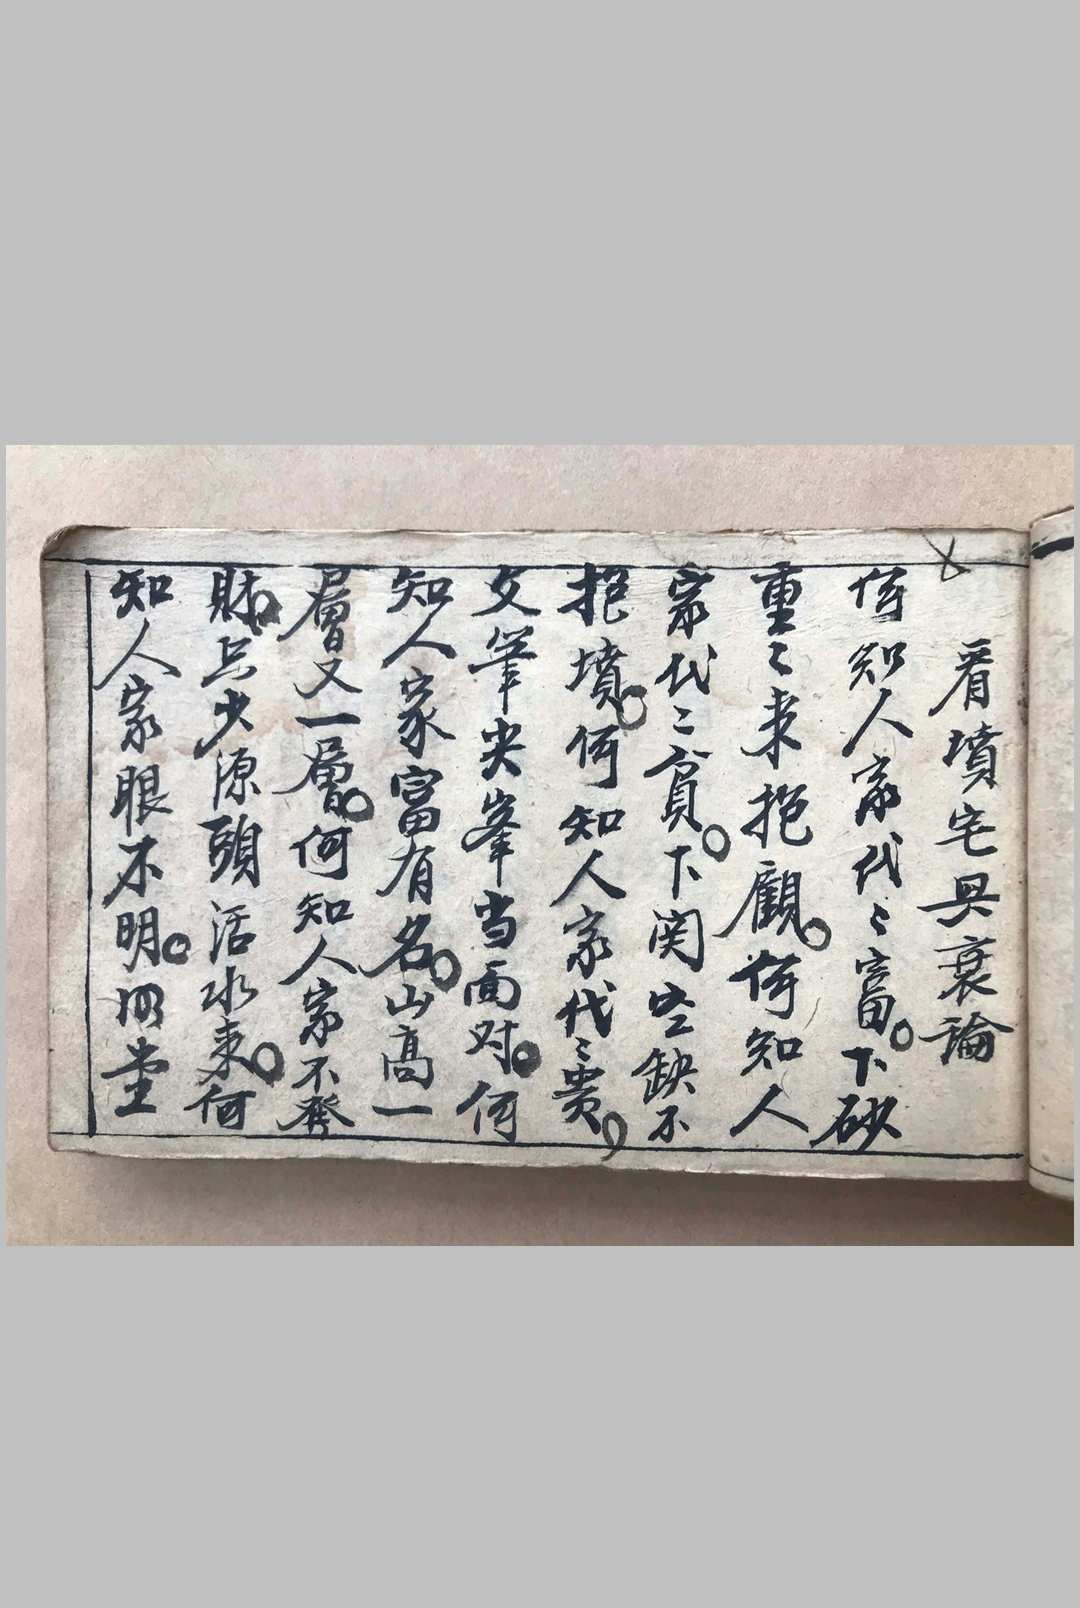 看墳宅興衰論
何知人家代〻富。下砂
重〻来抱顧。何知人
家代〻貧。下関空缺不
抱墳。何知人家代〻貴。
文筆尖峯当面对。何
知人家富有名。山高一
層又一層。何知人家不發
財。只少源頭活水來。何
知人家眼不明。明堂